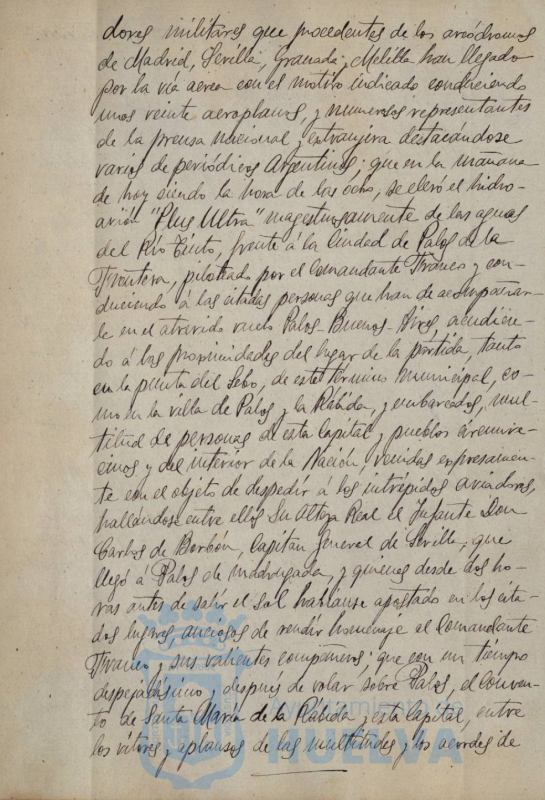 dores militares que procedentes de los aeródromos
de Madrid, Sevilla, Granada y Melilla han llegado
por la vía aerea con el motivo indicado conduciendo
unos veinte aeroplanos, y numerosos representantes
de la prensa nacional y extranjera destacandose
varios de periódicos Argentinos; que en la mañana
de hoy siendo la hora de las ocho, se elevó el hidro-
avión "Plus Ultra" magestuosamente de las aguas
del Río Tinto, frente á la Ciudad de Palos de la
Frontera, piloteado por el Comandante Franco y con-
duciendo á las citadas personas que han de acompañar-
le en el atrevido vuelo Palos-Buenos-Aires, acudién-
do á las proximidades del lugar de la pártida, tanto
en la punta del Sebo, de este término municipal, co-
mo en la villa de Palos y la Rábida, y embarcados, mul-
titud de personas de esta Capital y pueblos circunve-
cinos y del interior de la Nación, venidas expresamen-
te con el objeto de despedir á los intrépidos aviadores,
hallándose entre ellos Su Alteza Real el Infante Don
Carlos de Borbón, Capitan General de Sevilla, que
llegó á Palos de madrugada, y quienes desde dos ho-
ras antes de salir el sol habíanse apostado en los cita-
dos lugares, anciosos de rendir homenaje al Comandante
Franco y sus valientes compañeros; que con un tiempo
despejadísimo y después de volar sobre Palos, el Conven-
to de Santa María de la Rábida y esta Capital, entre
los vítores y aplausos de las multitudes y los acordes de
Ayuntamiento de
HUELVA